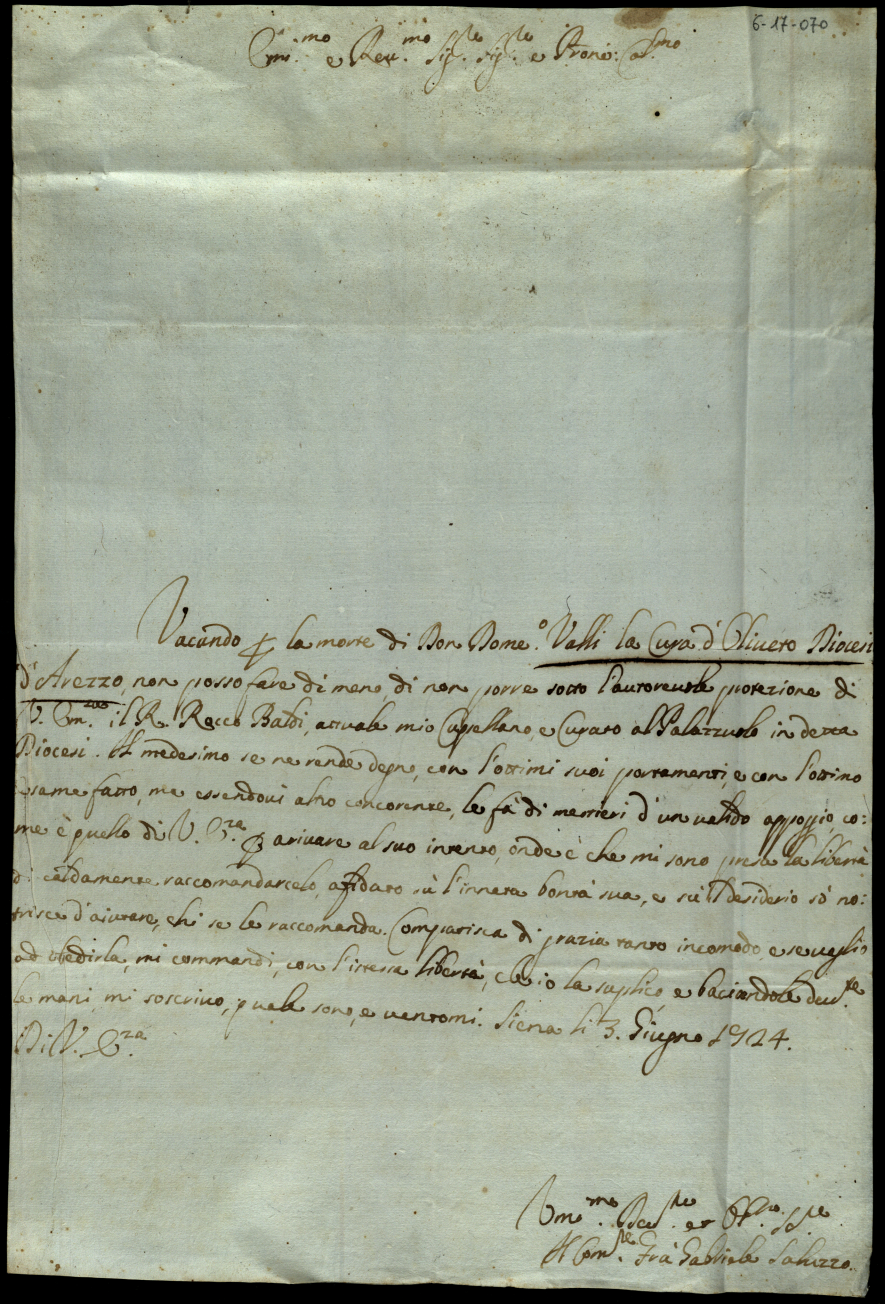 6-17-070
Em.mo e Reu.mo Sig.re Sig.re e Prone: Col.mo
Vacando p la morte di Don Dome.o Valli la Cura d'Oliueto Diocesi
d'Arezzo, non posso fare di meno, di non porre sotto l'autoreuole protezione di
V. Em.za il R. Rocco Baldi, attuale mio Capellano, e Curato al Palazzuolo in detta
Diocesi. Il medesimo se ne rende degno, con l'ottimi suoi portamenti, e con l'ottimo
esame fatto, ma essendoui altro concorente, le fà di mestieri d'un ualido appoggio, co:
me è quello di V. E.za p ariuare al suo intento, onde è che mi sono presa la libertà
di caldamente raccomandarcelo, affidato sù l'innata bontà sua, e sù'l desiderio sò no:
trisce d'aiutare, chi se le raccomanda. Compatisca di grazia tanto incomodo, e se uaglio
ad obedirla, mi commandi, con l'istessa libertà, che io la suplico, e baciandole deu.te
le mani, mi soscriuo, quale sono, e uantomi. Siena li 3. Giugno 1724.
Di V. E.za
Um.mo Deu.mo et
Il Com.re Frà Gabriele Saluzzo.